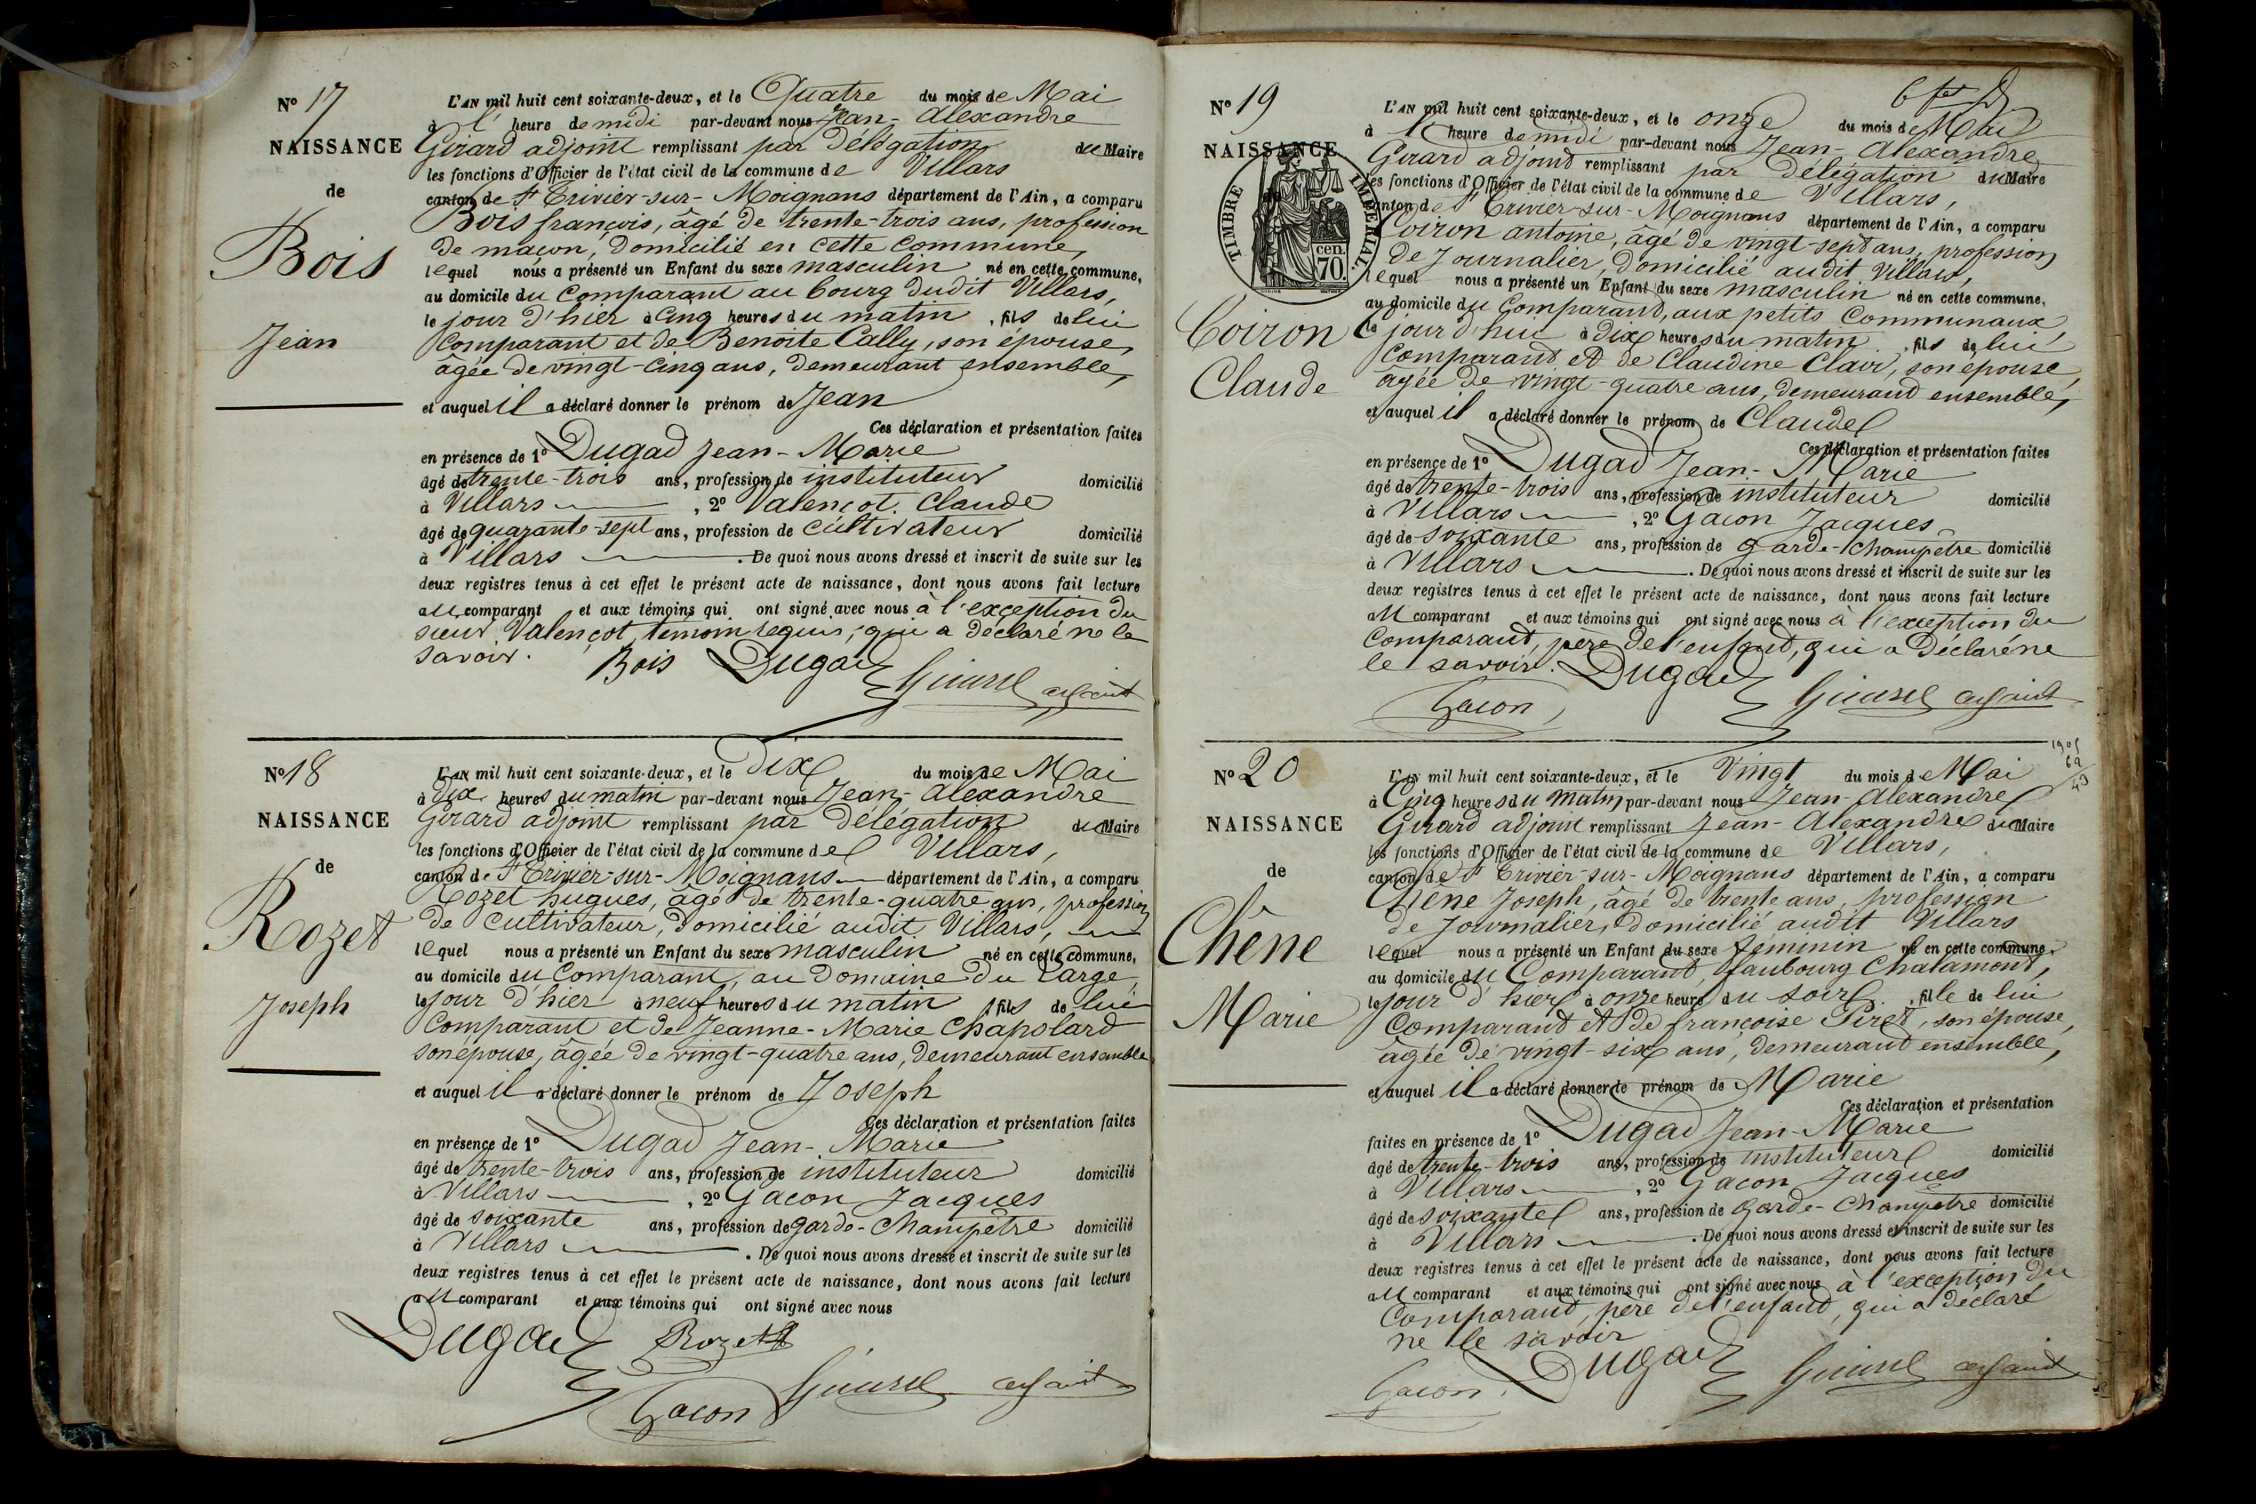 N° 17
NAISSANCE
de
Bois
Jean
L'AN mil huit cent soixante-deux, et le Quatre du mois de Mai
à l' heure de midi par-devant nous Jean-Alexandre
Girard adjoint remplissant par Délégation du Maire
les fonctions d'Officier de l'état civil de la commune de Villars
canton de St Trivier-sur-Moignans département de l'Ain, a comparu
Bois françois, âgé de trente-trois ans, profession
de maçon, domicilié en cette commune,
lequel nous a présenté un Enfant du sexe masculin né en cette commune,
au domicile du Comparant au bourg dudit Villars,
le jour d'hier à cinq heures du matin, fils de lui
Comparant et de Benoite Cally, son épouse,
âgée de vingt-cinq ans, demeurant ensemble,
et auquel il a déclaré donner le prénom de Jean
Ces déclaration et présentation faites
en présence de 1° Dugad Jean-Marie
âgé de trente-trois ans, profession de instituteur domicilié
à Villars, 2° Valençot Claude
âgé de quarante-sept ans, profession de cultivateur domicilié
à Villars. De quoi nous avons dressé et inscrit de suite sur les
deux registres tenus à cet effet le présent acte de naissance, dont nous avons fait lecture
au comparant et aux témoins qui ont signé avec nous à l'exception du
sieur Valençot, témoin requis, qui a déclaré ne le
savoir.
Bois Dugad Girard adjoint
N° 18
NAISSANCE
de
Rozet
Joseph
L'AN mil huit cent soixante-deux, et le dix du mois de Mai
à dix heures du matin par-devant nous Jean-Alexandre
Girard adjoint remplissant par Délégation du Maire
les fonctions d'Officier de l'état civil de la commune de Villars,
canton de St Trivier-sur-Moignans département de l'Ain, a comparu
Rozet hugues, âgé de trente-quatre ans, profession
de Cultivateur, domicilié audit Villars,
lequel nous a présenté un Enfant du sexe masculin né en cette commune,
au domicile du Comparant, au Domaine du Large
le jour d'hier à neuf heures du matin, fils de lui
Comparant et de Jeanne-Marie Chapolard
son épouse, âgée de vingt-quatre ans, demeurant ensemble
et auquel il a déclaré donner le prénom de Joseph
Ces déclaration et présentation faites
en présence de 1° Dugad Jean-Marie
âgé de trente-trois ans, profession de instituteur domicilié
à Villars, 2° Gacon Jacques
âgé de soixante ans, profession de garde-Champêtre domicilié
à Villars. De quoi nous avons dressé et inscrit de suite sur les
deux registres tenus à cet effet le présent acte de naissance, dont nous avons fait lecture
au comparant et aux témoins qui ont signé avec nous
Dugad Rozet
Gacon Girard adjoint
N° 19
NAISSANCE
TIMBRE IMPÉRIAL.
cen. 70.
Coiron
Claude
L'AN mil huit cent soixante-deux, et le onze du mois de Mai
à 1 heure de midi par-devant nous Jean-Alexandre
Girard adjoint remplissant par délégation du Maire
les fonctions d'Officier de l'état civil de la commune de Villars,
canton de St Trivier-sur-Moignans département de l'Ain, a comparu
Coiron antoine, âgé de vingt-sept ans, profession
de Journalier, domicilié audit Villars,
lequel nous a présenté un Enfant du sexe masculin né en cette commune,
au domicile du Comparant, aux petits Communaux,
le jour d'hui à dix heures du matin, fils de lui
Comparant et de Claudine Clair, son épouse,
âgée de vingt-quatre ans, demeurant ensemble,
et auquel il a déclaré donner le prénom de Claude
Ces déclaration et présentation faites
en présence de 1° Dugad Jean-Marie
âgé de trente-trois ans, profession de instituteur domicilié
à Villars, 2° Gacon Jacques
âgé de soixante ans, profession de garde-champêtre domicilié
à Villars. De quoi nous avons dressé et inscrit de suite sur les
deux registres tenus à cet effet le présent acte de naissance, dont nous avons fait lecture
au comparant et aux témoins qui ont signé avec nous à l'exception du
Comparant, père de l'enfant, qui a déclaré ne
le savoir. Dugad
Gacon Girard adjoint
N° 20
NAISSANCE
de
Chêne
Marie
L'AN mil huit cent soixante-deux, et le vingt du mois de Mai
à Cinq heures du matin par-devant nous Jean-Alexandre
Girard adjoint remplissant Jean-Alexandre du Maire
les fonctions d'Officier de l'état civil de la commune de Villars,
canton de St Trivier-sur-Moignans département de l'Ain, a comparu
Chêne Joseph, âgé de trente ans, profession
de Journalier, domicilié audit Villars
lequel nous a présenté un Enfant du sexe féminin né en cette commune,
au domicile du Comparant, faubourg Chalamont,
le jour d'hier à onze heure du soir, fille de lui
Comparant et de françoise Piret, son épouse,
âgée de vingt-six ans, demeurant ensemble,
et auquel il a déclaré donner le prénom de Marie
Ces déclaration et présentation
faites en présence de 1° Dugad Jean-Marie
âgé de trente-trois ans, profession de instituteur domicilié
à Villars, 2° Gacon Jacques
âgé de soixante ans, profession de garde-Champêtre domicilié
à Villars. De quoi nous avons dressé et inscrit de suite sur les
deux registres tenus à cet effet le présent acte de naissance, dont nous avons fait lecture
au comparant et aux témoins qui ont signé avec nous à l'exception du
Comparant, père de l'enfant, qui a déclaré
ne le savoir
Gacon Dugad Girard adjoint